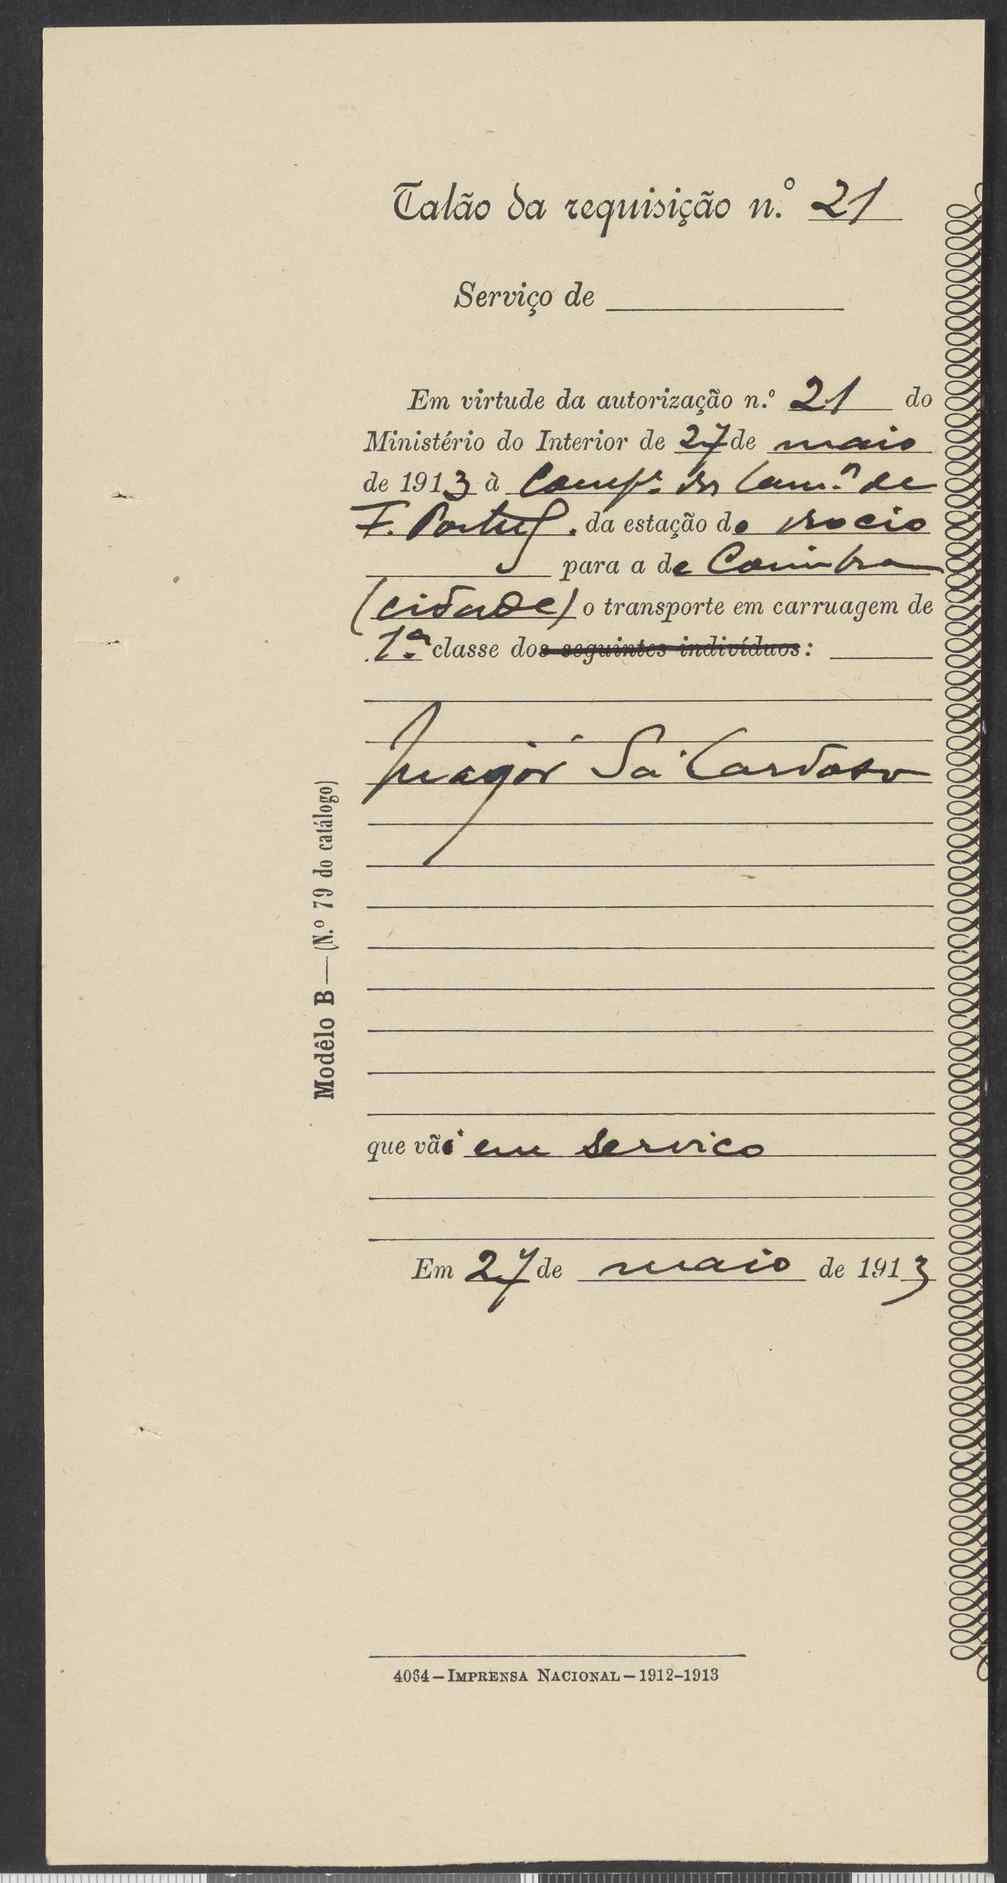 Talão da requisição n.º 21
Serviço de
Em virtude da autorização n.º 21 do
Ministério do Interior de 27 de maio
de 1913 à Comp.ª dos Cam.os de
F. Portug. da estação do rocio
para a de Coimbra
(cidade) o transporte em carruagem de
1.ª classe dos seguintes indivíduos:
Major Sá Cardoso
que vai em serviço
Em 27 de maio de 1913
Modêlo B — (N.º 79 do catálogo)
4034 – IMPRENSA NACIONAL – 1912–1913